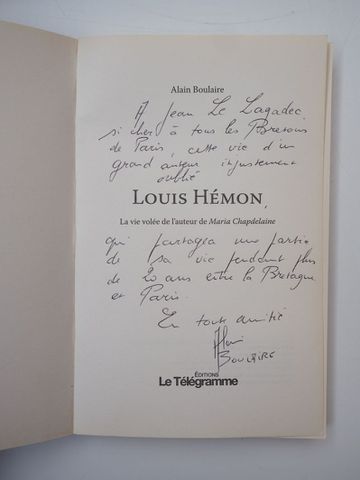 Alain Boulaire
A Jean Le Lagadec,
si cher à tous les Bretons
de Paris, cette vie d'un
grand auteur injustement
oublié
LOUIS HÉMON,
La vie volée de l'auteur de Maria Chapdelaine
qui partagea une partie
de sa vie pendant plus
de 20 ans entre la Bretagne
et Paris.
En toute amitié
Alain
BOULAIRE
ÉDITIONS
Le Télégramme